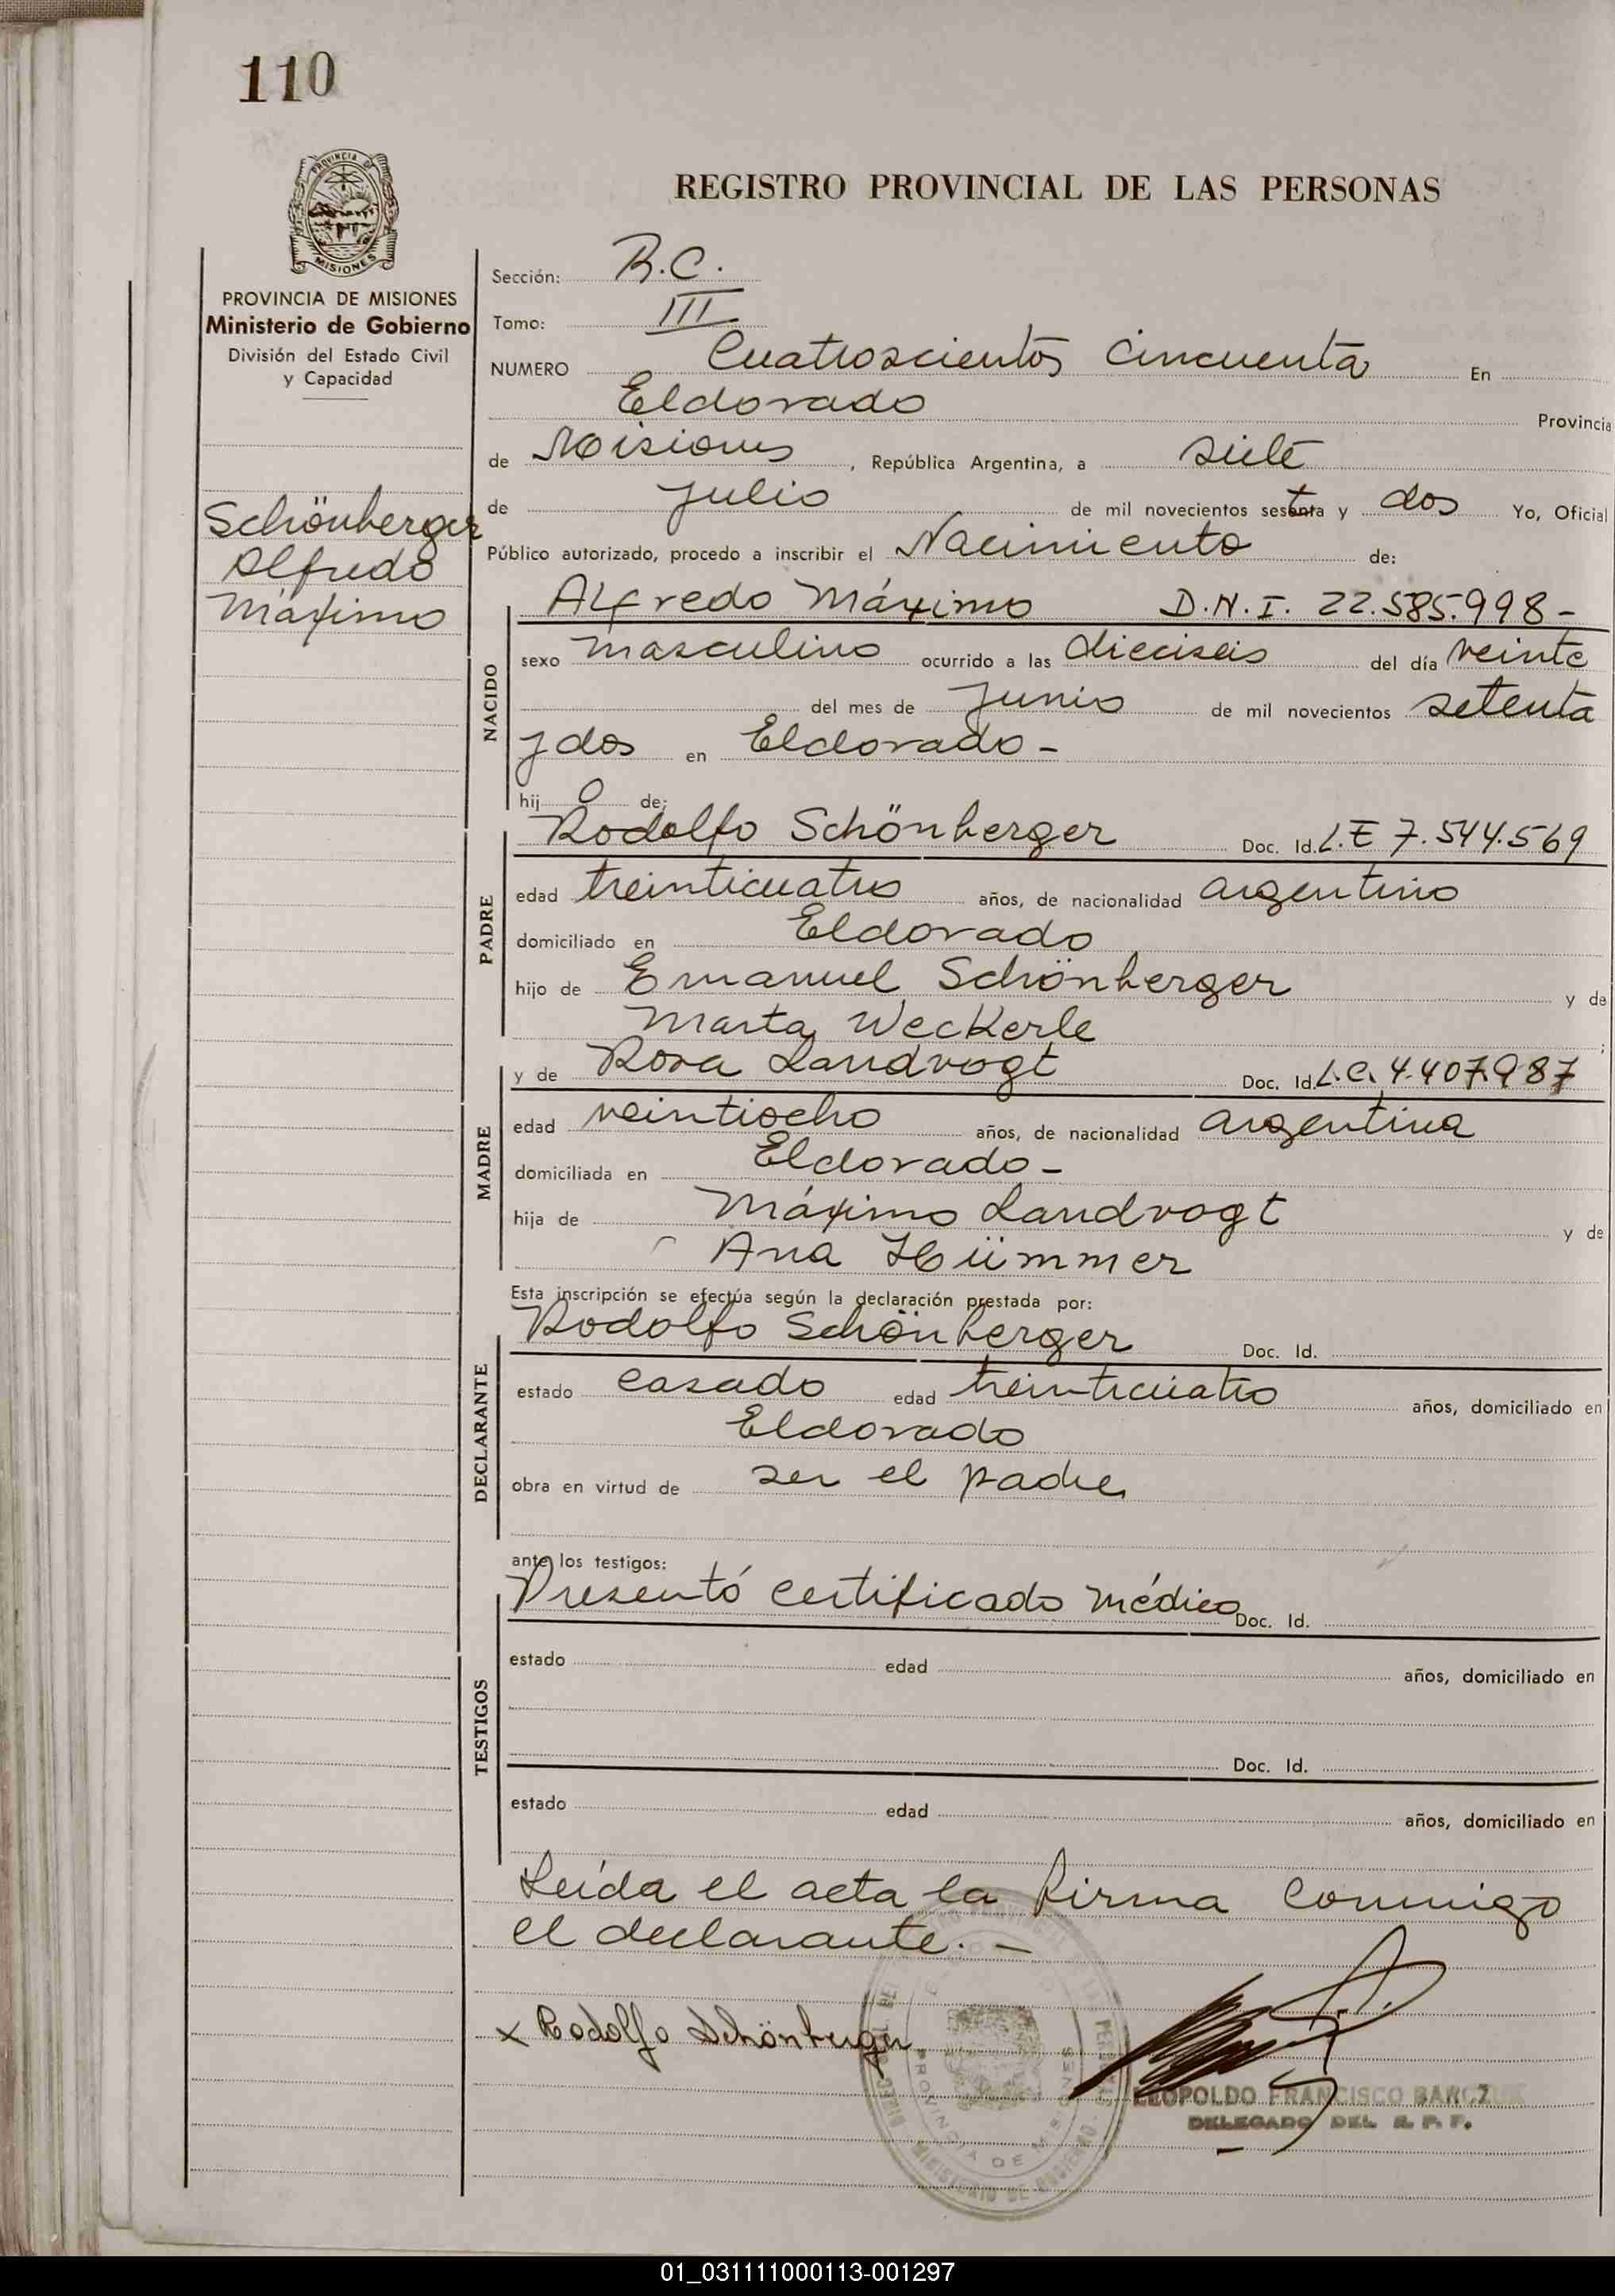 110
PROVINCIA DE
MISIONES
REGISTRO PROVINCIAL DE LAS PERSONAS
PROVINCIA DE MISIONES
Ministerio de Gobierno
División del Estado Civil
y Capacidad
Schönberger
Alfredo
Máximo
Sección: R.C.
Tomo: III
NUMERO Cuatroscientos cincuenta En
Eldorado Provincia
de Misiones, República Argentina, a siete
de Julio de mil novecientos setenta y dos Yo, Oficial
Público autorizado, procedo a inscribir el Nacimiento de:
NACIDO
Alfredo Máximo D.N.I. 22.585.998-
sexo masculino ocurrido a las dieciseis del día veinte
del mes de Junio de mil novecientos setenta
y dos en Eldorado-
hijo de:
PADRE
Rodolfo Schönberger Doc. Id. L.E 7.544.569
edad treinticuatro años, de nacionalidad argentino
domiciliado en Eldorado
hijo de Emanuel Schönberger y de
Marta Weckerle;
MADRE
y de Rosa Landvogt Doc. Id. L.C. 4.407.987
edad veintiocho años, de nacionalidad argentina
domiciliada en Eldorado-
hija de Máximo Landvogt y de
Ana Hümmer
Esta inscripción se efectúa según la declaración prestada por:
DECLARANTE
Rodolfo Schönberger Doc. Id.
estado casado edad treinticuatro años, domiciliado en
Eldorado
obra en virtud de ser el padre
ante los testigos:
TESTIGOS
Presentó certificado médico Doc. Id.
estado edad años, domiciliado en
Doc. Id.
estado edad años, domiciliado en
Leída el acta la firma conmigo
el declarante.-
x Rodolfo Schönberger
PROVINCIA DE MISIONES
MINISTERIO DE GOBIERNO
LEOPOLDO FRANCISCO
DELEGADO DEL R. P. P.
01_031111000113-001297